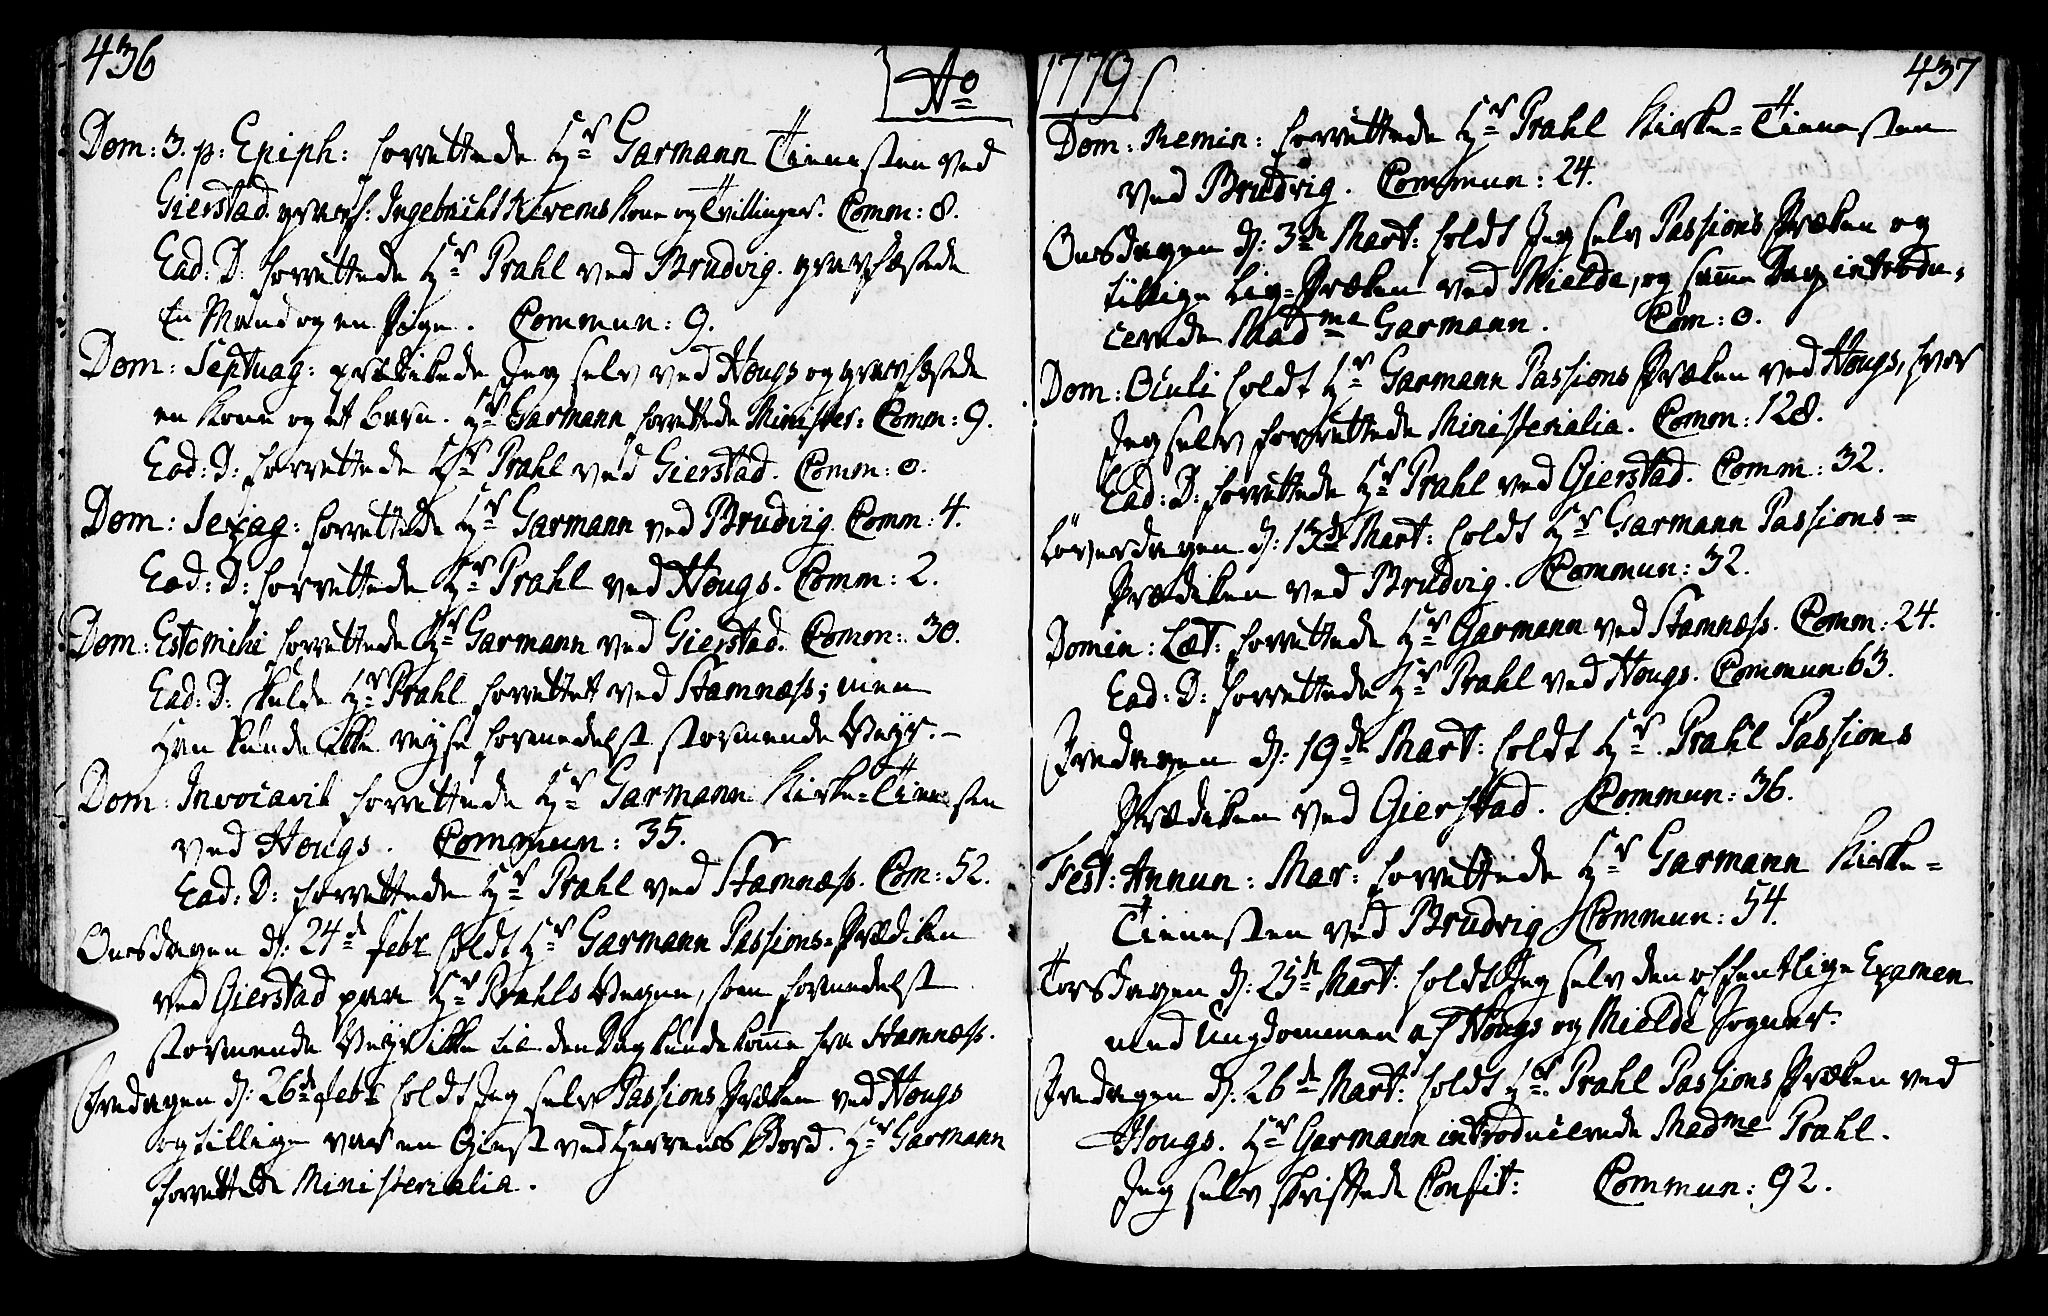 436
Ao
Dom: 3. p: Epiph: forrettede Hr Garmann Tienesten ved
Gierstad. gravf: Ingebricht Kone og Tvillinger. Comm: 8.
Ead: D: forrettede Hr Prahl ved Brudvig. gravfæstede
En Mand og en Pige. Commun: 9.
Dom: Septuag: prædikede Jeg selv ved Hougs og gravfæstede
en Kone og et barn. Hr Garmann forrettede Minister: Comm: 9.
Ead: D: forrettede Hr Prahl ved Gierstad. Comm: 0.
Dom: Sexag: forrettede Hr Garmann ved Brudvig. Comm: 4.
Ead: D: forrettede Hr Prahl ved Hougs. Comm: 2.
Dom: Estomihi forrettede Hr Garmann ved Gierstad. Comm: 30.
Ead: D. skulde Hr Prahl forrettet ved Stamnæss; men
Han kunde ikke reyse formedelst stormende Veyr.
Dom: Invocavit forrettede Hr Garmann Kirke=Tienesten
ved Hougs. Commun: 35.
Ead: D: forrettede Hr Prahl ved Stamnæss. Com: 52.
Onsdagen d: 24d Febr holdt Hr Garmann Passions-Prædiken
ved Gierstad paa Hr Prahls Vegne, som formedelst
stormende Veyr ikke til den Dag kunde komme fra Stamnæss.
Fredagen d: 26de Febr holdt Jeg selv Passions Præken ved Hougs
og tillige var en Giest ved Herrens Bord. Hr Garmann
forrettede Ministerialia.
1779
437
Dom: Remin: forrettede Hr Prahl Kirke=Tienesten
ved Brudvig. Commun: 24.
Onsdagen d: 3de Mart: holdt Jeg selv Passions Præken og
tillige Lig=Præken ved Mielde, og samme Dag introdu=
cerede Madme Garmann. Com: 0.
Dom: Oculi holdt Hr Garmann Passions Præken ved Hougs, hvor
Jeg selv forrettede Ministerialia. Comm: 128.
Ead: D: forrettede Hr Prahl ved Gierstad. Comm: 32.
Löverdagen d: 13de Mart: holdt Hr Garmann Passions=
Prædiken ved Brudvig. Commun: 32.
Domin: Læt: forrettede Hr Garmann ved Stamnæss. Comm: 24.
Ead: D: forrettede Hr Prahl ved Hougs. Commun: 63.
Fredagen d: 19de Mart: holdt Hr Prahl Passions
Prædiken ved Gierstad. Commun: 36.
Fest: Annun: Mar: forrettede Hr Garmann Kirke=
Tienesten ved Brudvig Commun: 54.
Torsdagen d: 25de Mart: holdt Jeg selv den offentlige Examen
med Ungdommen af Hougs og Mielde Sogner.
Fredagen d: 26d Mart: holdt Hr Prahl Passions Præken ved
Hougs. Hr Garmann introducerede Madme Prahl.
Jeg selv skriftede Confit: Commun: 92.